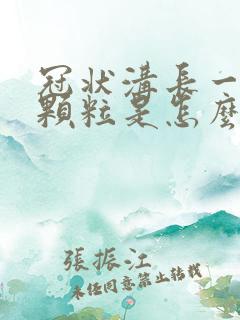 冠狀溝長一
顆粒是怎麼
張振江
未经同意禁止转载